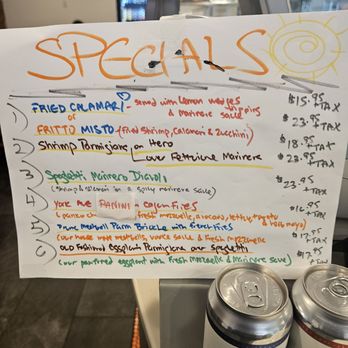 SPECIALS
1) FRIED CALAMARI - served with lemon wedges $15.95 +TAX
or & Marinara sauce
FRITTO MISTO (fried shrimp, Calamari & Zucchini) $23.95 +TAX
2 Shrimp Parmigiana on Hero $18.95 +TAX
over Fettuccine Marinara $23.95 +TAX
3 Spaghetti Marinara Diavolo $23.95 +TAX
in a spicy marinara sauce)
4 PANINI - Cajun Fries $16.95 +TAX
fresh mozzarella, avocado, lettuce, tomato
5 Meatball Parm Brioche with French Fries $17.95 +TAX
meatballs, sauce & Fresh Mozzarella
6 OLD Fashioned eggplant Parmigiana over spaghetti $17.95
(our panfried eggplant with Fresh Mozzarella & Marinara sauce)